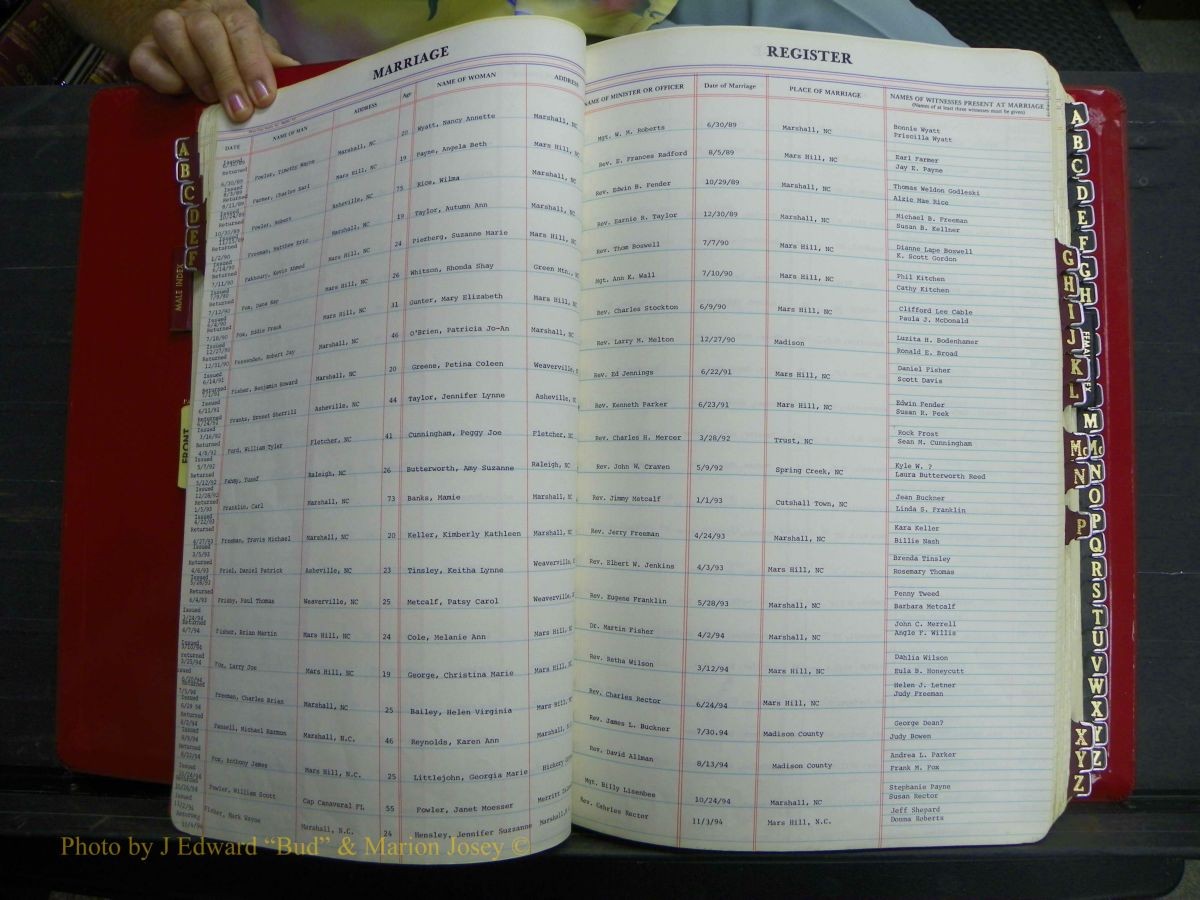 MARRIAGE
DATE NAME OF MAN ADDRESS Age NAME OF WOMAN ADDRESS
Fowler, Timothy Wayne Marshall, NC 20 Wyatt, Nancy Annette Marshall,
Farmer, Charles Earl Mars Hill, NC 19 Payne, Angela Beth Mars Hill,
Fowler, Robert Asheville, NC 75 Rice, Wilma Marshall,
Freeman, Matthew Eric Marshall, NC 19 Taylor, Autumn Ann Marshall,
Fakhoury, Kevin Ahmed Mars Hill, NC 24 Pierberg, Suzanne Marie Mars Hill,
Fox, Dana Ray Mars Hill, NC 26 Whitson, Rhonda Shay Green Mtn.,
Fox, Eddie Frank Mars Hill, NC 31 Gunter, Mary Elizabeth Mars Hill,
Fessenden, Robert Jay Marshall, NC 46 O'Brien, Patricia Jo-An Marshall,
Fisher, Benjamin Howard Marshall, NC 20 Greene, Petina Coleen Weaverville,
Frantz, Ernest Sherrill Asheville, NC 44 Taylor, Jennifer Lynne Asheville,
Ford, William Tyler Fletcher, NC 41 Cunningham, Peggy Joe Fletcher,
Fahmy, Yusef Raleigh, NC 26 Butterworth, Amy Suzanne Raleigh,
Franklin, Carl Marshall, NC 73 Banks, Mamie Marshall,
Freeman, Travis Michael Marshall, NC 20 Keller, Kimberly Kathleen Marshall,
Friel, Daniel Patrick Asheville, NC 23 Tinsley, Keitha Lynne Weaverville,
Frisby, Paul Thomas Weaverville, NC 25 Metcalf, Patsy Carol Weaverville,
Fisher, Brian Martin Mars Hill, NC 24 Cole, Melanie Ann Mars Hill,
Fox, Larry Joe Mars Hill, NC 19 George, Christina Marie Mars Hill,
Freeman, Charles Brian Marshall, NC 25 Bailey, Helen Virginia Mars Hill,
Marshall, N.C. 46 Reynolds, Karen Ann Marshall,
Fox, Anthony James Mars Hill, N.C. 25 Littlejohn, Georgia Marie Hickory
Fowler, William Scott Cap Canaveral FL 55 Fowler, Janet Moesser Merritt
Fisher, Mark Wayne Marshall, N.C. 24 Hensley, Jennifer Suzzanne Marshall,
REGISTER
NAME OF MINISTER OR OFFICER Date of Marriage PLACE OF MARRIAGE NAMES OF WITNESSES PRESENT AT MARRIAGE
(Names of at least three witnesses must be given)
Mgt. W. M. Roberts 6/30/89 Marshall, NC Bonnie Wyatt
Priscilla Wyatt
Rev. E. Frances Radford 8/5/89 Mars Hill, NC Earl Farmer
Jay E. Payne
Rev. Edwin B. Fender 10/29/89 Marshall, NC Thomas Weldon Godleski
Alzie Mae Rice
Rev. Earnie R. Taylor 12/30/89 Marshall, NC Michael B. Freeman
Susan B. Kellner
Rev. Thom Boswell 7/7/90 Mars Hill, NC Dianne Lape Boswell
K. Scott Gordon
Mgt. Ann K. Wall 7/10/90 Mars Hill, NC Phil Kitchen
Cathy Kitchen
Rev. Charles Stockton 6/9/90 Mars Hill, NC Clifford Lee Cable
Paula J. McDonald
Rev. Larry M. Melton 12/27/90 Madison Luzita H. Bodenhamer
Ronald E. Broad
Rev. Ed Jennings 6/22/91 Mars Hill, NC Daniel Fisher
Scott Davis
Rev. Kenneth Parker 6/23/91 Mars Hill, NC Edwin Fender
Susan R. Peek
Rev. Charles H. Mercer 3/28/92 Trust, NC Rock Frost
Sean M. Cunningham
Rev. John W. Craven 5/9/92 Spring Creek, NC Kyle W. ?
Laura Butterworth Reed
Rev. Jimmy Metcalf 1/1/93 Cutshall Town, NC Jean Buckner
Linda G. Franklin
Rev. Jerry Freeman 4/24/93 Marshall, NC Kara Keller
Billie Nash
Rev. Elbert W. Jenkins 4/3/93 Mars Hill, NC Brenda Tinsley
Rosemary Thomas
Rev. Eugene Franklin 5/28/93 Marshall, NC Penny Tweed
Barbara Metcalf
Dr. Martin Fisher 4/2/94 Marshall, NC John C. Merrell
Angie F. Willis
Rev. Retha Wilson 3/12/94 Mars Hill, NC Dahlia Wilson
Eula B. Honeycutt
Rev. Charles Rector 6/24/94 Mars Hill, NC Helen J. Letner
Judy Freeman
Rev. James L. Buckner 7/30.94 Madison County George Dean?
Judy Bowen
Rev. David Allman 8/13/94 Madison County Andrea L. Parker
Frank M. Fox
Mgt. Billy Lisenbee 10/24/94 Marshall, NC Stephanie Payne
Susan Rector
Rev. Cehrles Rector 11/3/94 Mars Hill, N.C. Jeff Shepard
Donna Roberts
A
B
C
D
E
F
MALE INDEX
FRONT
A
B
C
D
E
F
G
H
G
H
I
J
K
L
M
Mc
N
P
Mc
N
O
P
Q
R
S
T
U
V
W
X
Y
Z
XYZ
Photo by J Edward “Bud” & Marion Josey ©